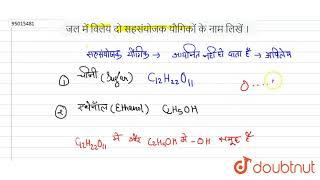 95015481
जल में विलेय दो सहसंयोजक यौगिकों के नाम लिखें ।
सहसंयोजक यौगिक → आयनित नहीं हो पाता है → अविलेय
(1) चीनी (Sugar) C₁₂H₂₂O₁₁
(2) एथेनॉल (Ethanol) C₂H₅OH
C₁₂H₂₂O₁₁ में और C₂H₅OH में -OH समूह है
doubtnut